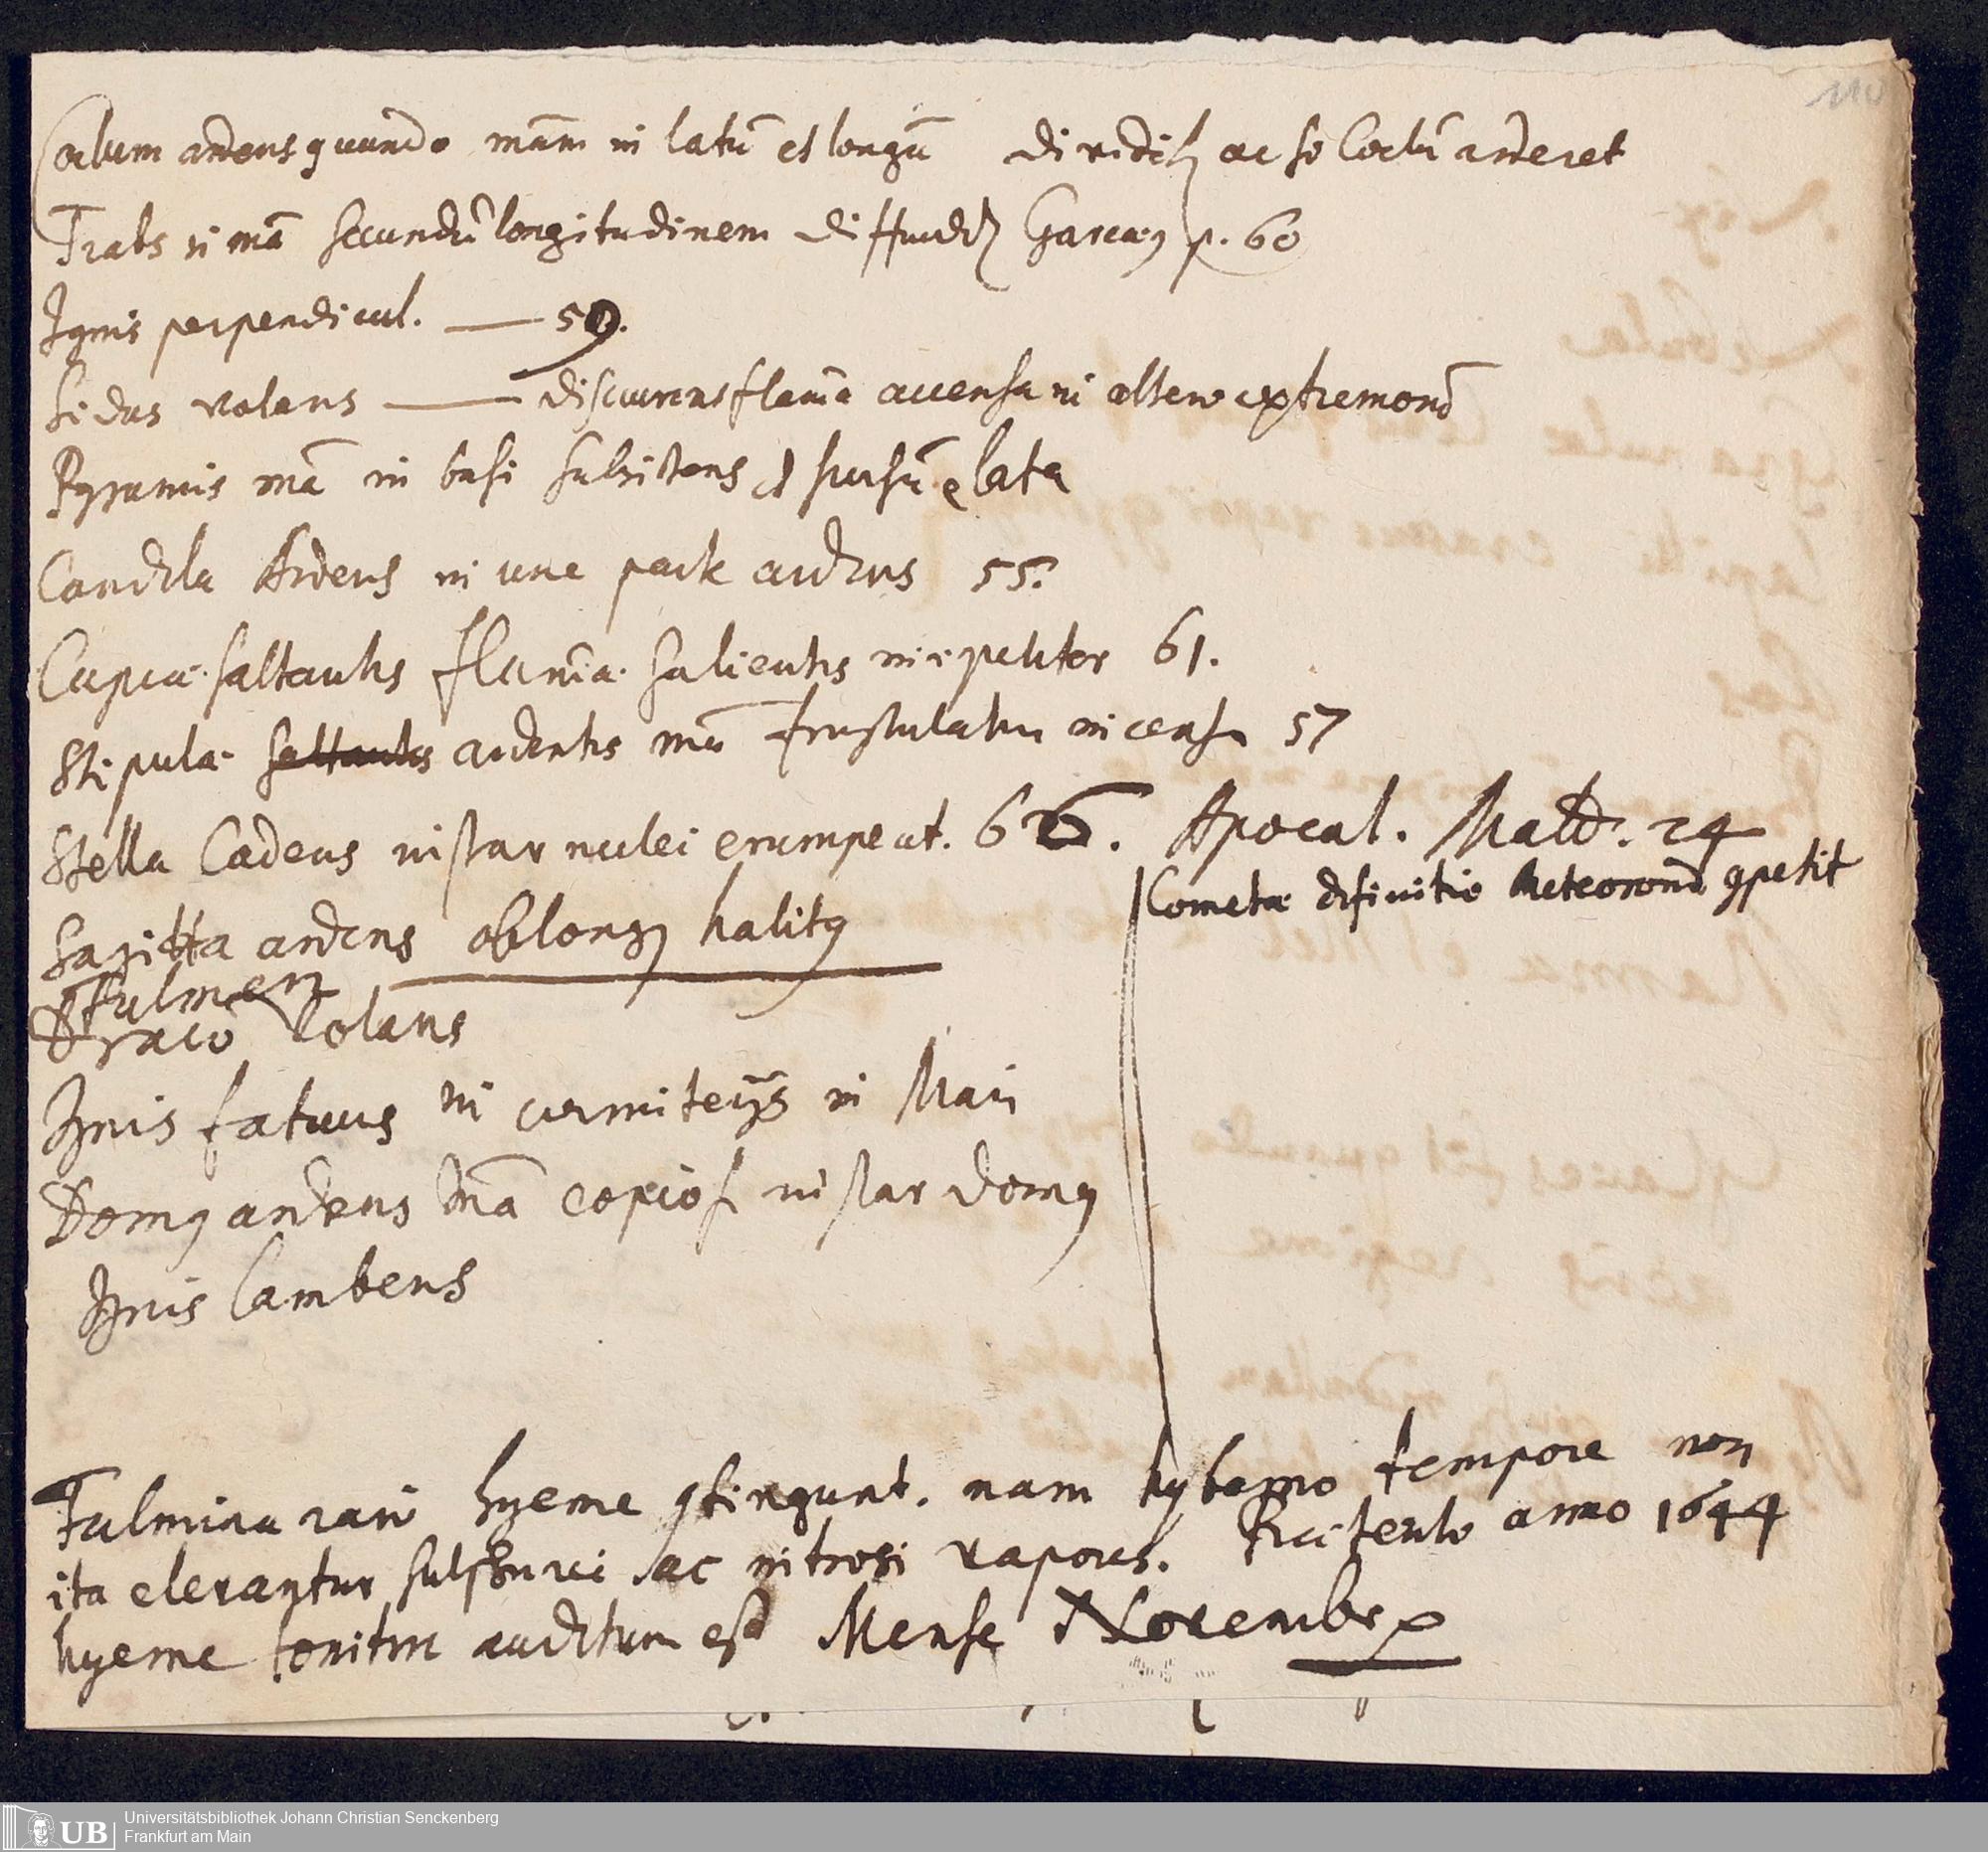 110
Coelum ardens quando mãm in latũ et longũ dividitꝫ ac si Coelũ arderet
Trabs si mã secundũ longitudinem diffunditꝫ Garcaeꝰ p. 60
Ignis perpendicul. — 59.
Sidus volans — discurrens flam̃a accensa in altero extremorũ
Pyramis mã in basi subsistens et sursũ elata
Candela Ardens in una parte ardens 55.
Caprae saltantis flam̃a salientis 61.
Stipulae saltantis ardentis mã frustulatim incensa 57
Stella Cadens instar nuclei erumpeat. 66. Apocal. Matth. 24
Cometae definitio Meteororũ ꝯpetit
Sagitta ardens oblongꝰ halitꝰ
Fulmen
Draco volans
Ignis fatuus in coemiterijs in Mari
Domꝰ ardens Mã copiosa instar domꝰ
Ignis lambens
Fulmina raro hyeme ꝯtingunt. nam hyberno tempore non
ita elevantur sulphurei ac nitrosi vapores. Praeterito anno 1644
hyeme tonitru auditum est Mense Novembr
UB Universitätsbibliothek Johann Christian Senckenberg
Frankfurt am Main